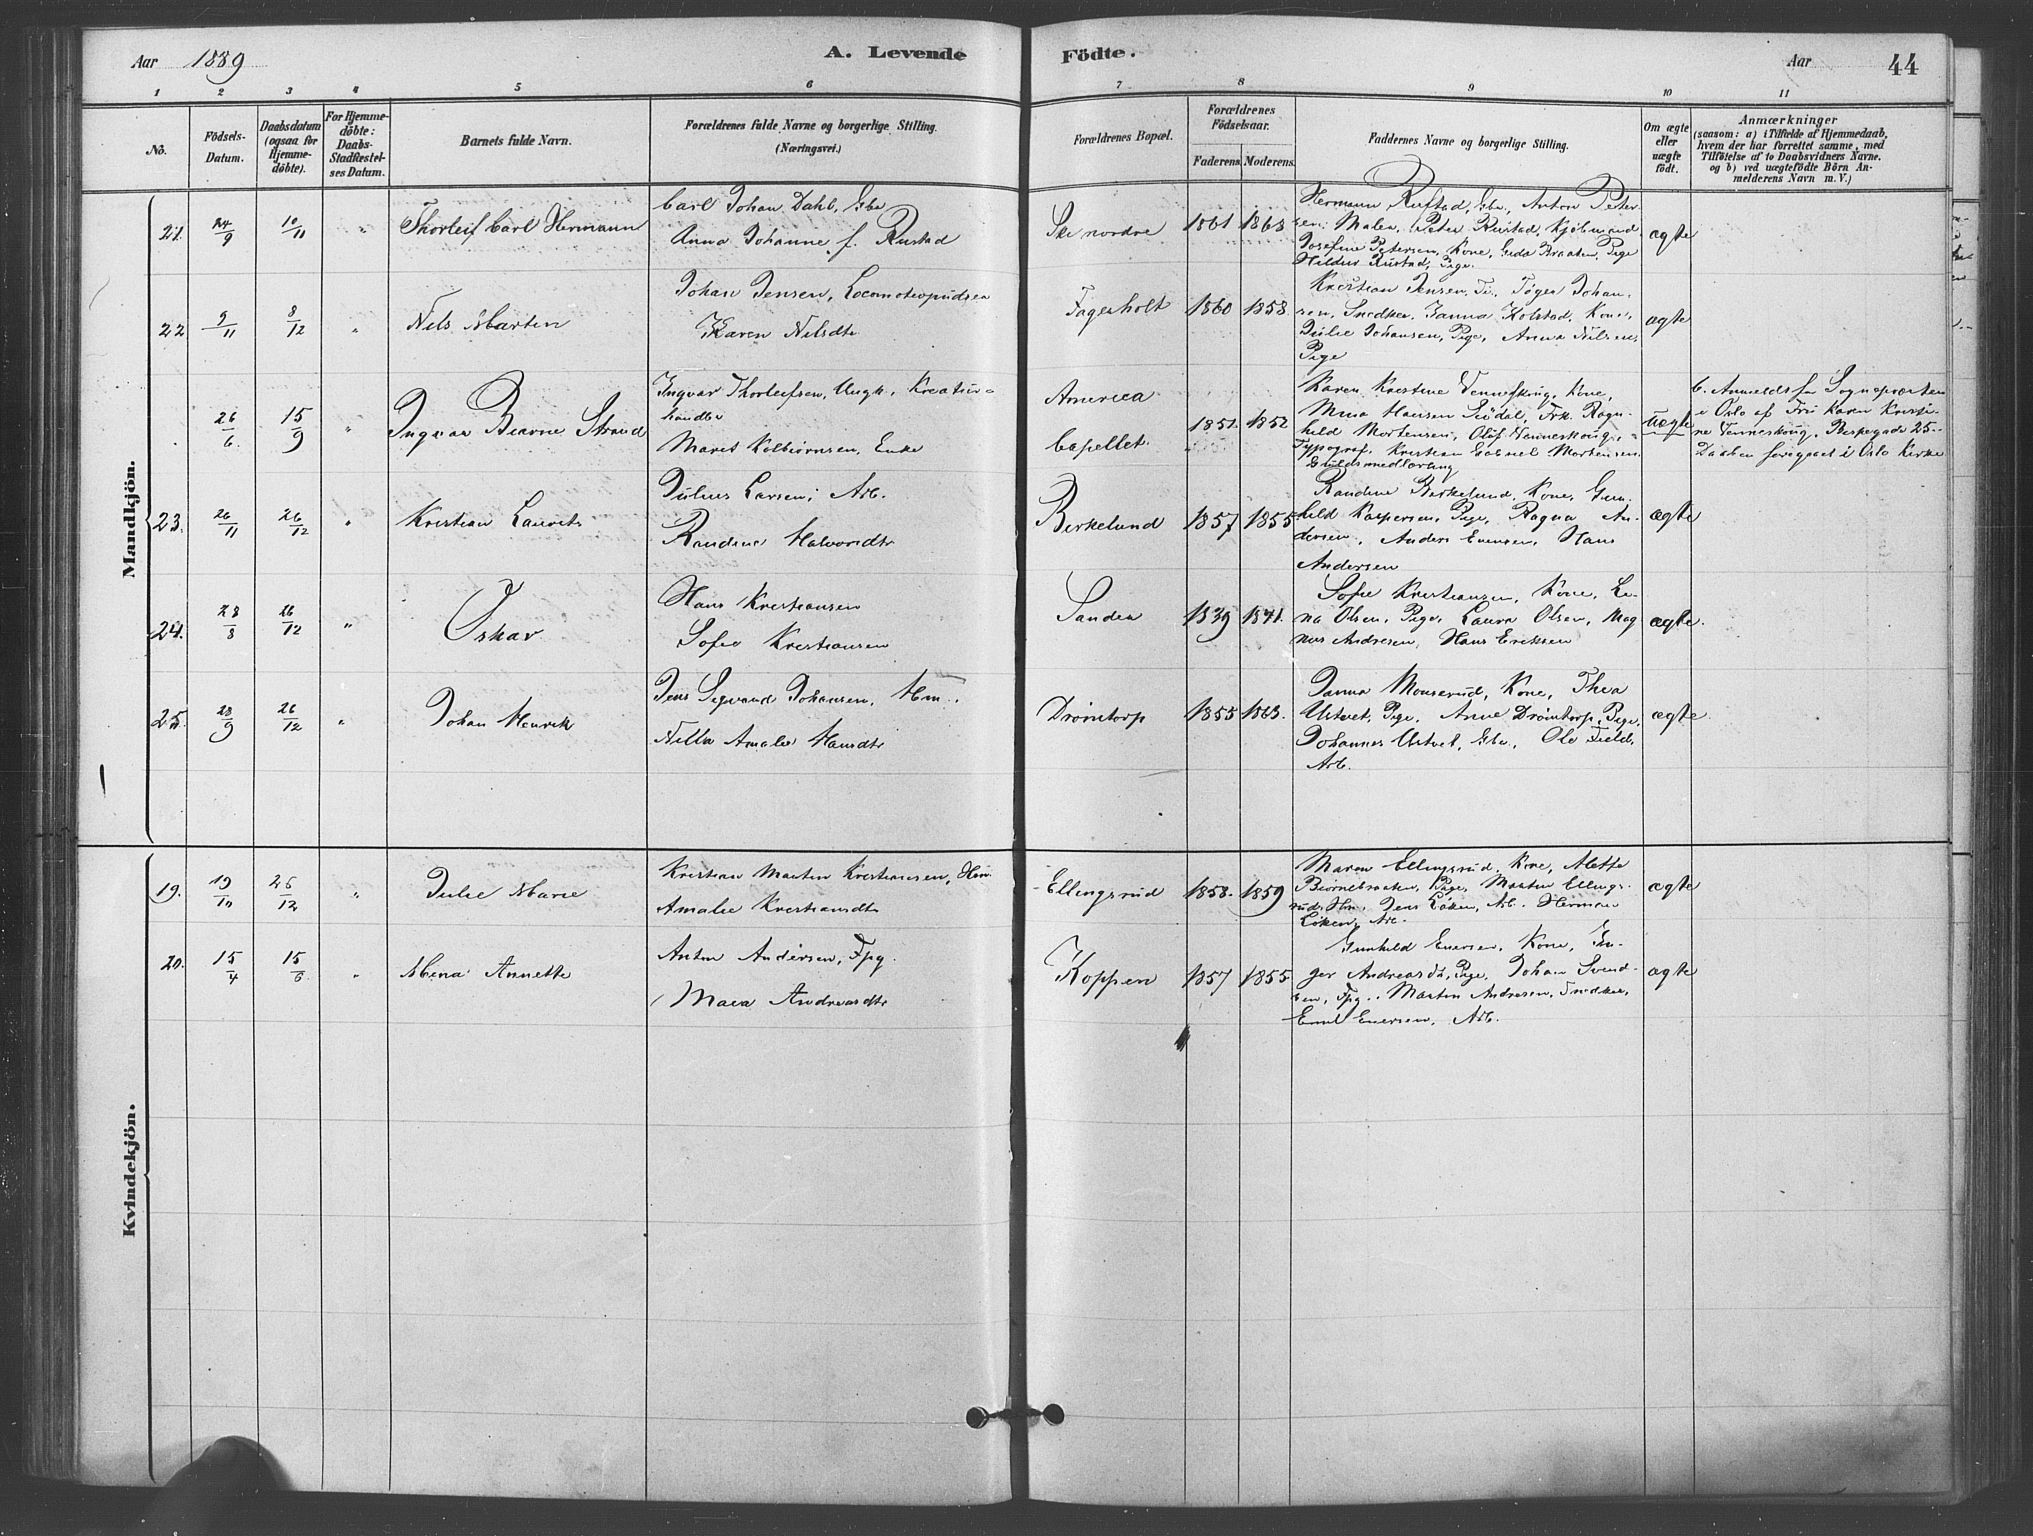 Aar 1889
A. Levende
Födte.
Aar
44
1 2 3 4 5 6 7 8 9 10 11
No.
Födsels-
Datum.
Daabsdatum
(ogsaa for
Hjemme-
döbte).
For Hjemme-
döbte:
Daabs-
Stadfæstel-
ses Datum.
Barnets fulde Navn.
Forældrenes fulde Navne og borgerlige Stilling.
(Næringsvei.)
Forældrenes Bopæl.
Forældrenes
Födselsaar.
Faderens. Moderens.
Faddernes Navne og borgerlige Stilling.
Om ægte
eller
uægte
födt.
Anmærkninger
(saasom: a) i Tilfælde af Hjemmedaab,
hvem der har forrettet samme, med
Tilföielse af to Daabsvidners Navne.
og b) ved uægtefödte Börn An-
melderens Navn m. V.)
Mandkjön.
21. 24/9 10/11 " Thorleif Carl Hermann
Carl Johan Dahl, Gbr
Anna Johanne f. Rustad
Ski nordre 1861 1863
Hermann Rustad, Gbr., Anton Peter-
sen, Maler, Peter Rustad, Kjøbmand
Josefine Petersen, Kone, Gida Braaten, Pige
Hildur Rustad, Pige.
ægte
22 9/11 8/12 " Nils Martin
Johan Jensen, Locomotivpudser
Karen Nilsdtr
Fagerholt 1860 1858.
Kristian Jensen, Johan-
sen, Snedker, Janna Kolstad, Kone,
Julie Johansen, Pige, Anna Nilsen,
Pige
ægte
26/6. 15/9 " Ingvar Bjarne Strand
Ingvar Thorleifsen, Ungk., Kreatur-
handler
Maret Kolbiørnsen, Enke
America
Capellet. 1851. 1852
Karen Kristine Venneskoug, Kone,
Hansen Frk. Ragn-
hild Mortensen, Oluf Venneskoug,
Typograf, Kristian Gabriel Mortensen
Guldsmedlærling
uægte
b. Anmeldt fra Sognepræsten
i Oslo af Fru Karen Kristi-
ne Venneskoug, 25.-
Daaben foregaaet i Oslo Kirke
23. 26/11 26/12 " Kristian Laurits
Julius Larsen, Arb.
Randine Halvorsdtr
Birkelund 1857 1855
Randine Birkelund, Kone, Gun-
hild Kaspersen, Pige, Ragna An-
dersen, Anders Evensen, Hans
Andersen
ægte
24. 28/8 26/12 " Oskar
Hans Kristiansen
Sofie Kristiansen
Sander 1839 1841.
Sofie Kristiansen, Kone, Li-
na Olsen, Pige, Laura Olsen, Mag
nus Andresen, Hans Eriksen
ægte.
25. 28/9 26/12 " Johan Henrik
Jens Sigvand Johansen, Hm.
Nilla Amalie Hansdtr
Drømtorp 1855 1863.
Janna Monserud, Kone, Thea
Ustvet, Pige, Anne Drømtorp, Pige,
Johannes Ustvet, Gbr., Ole Field,
Arb.
ægte
Kvindekjön.
19. 19/10 26/12 " Julie Marie
Kristian Martin Kristiansen, Hm.
Amalie Kristiansdtr
Ellingsrud 1858. 1859
Maren Ellingsrud, Kone, Alette
Bjørnebraaten, Pige, Martin Ellings-
rud, Hm. Jens Løken, Arb. Herman
Løken, Arb.
ægte
20. 15/4 15/6 " Mena Annette
Anton Andersen, Fpg.
Maia Andreasdtr
Koppen 1857 1855
Gunhild Evensen, Kone, In-
ger Andreasdtr, Pige, Johan Svend-
sen, Fpg., Martin Andresen, Snedker,
Emil Evensen, Arb.
ægte